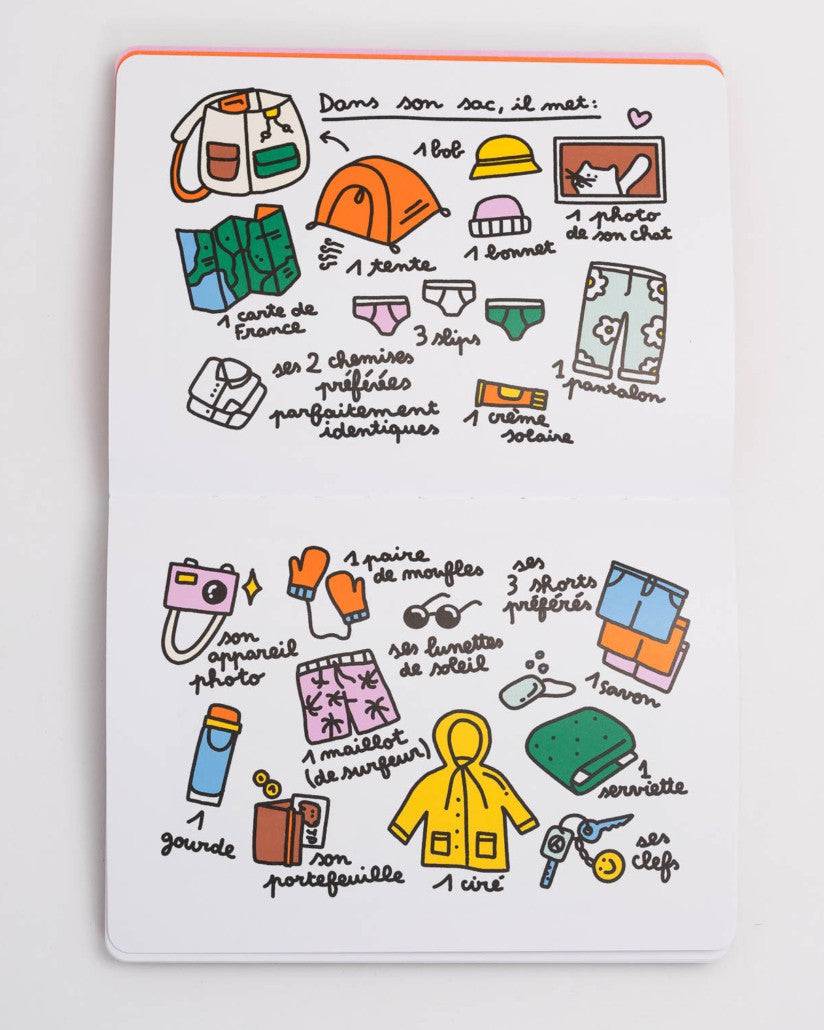 Dans son sac, il met:
1 bob
1 photo
de son chat
1 bonnet
1 tente
1 carte de
France
3 slips
1 pantalon
ses 2 chemises
préférées
parfaitement
identiques
1 crème
solaire
1 paire
de moufles
ses
3 shorts
préférés
son
appareil
photo
ses lunettes
de soleil
1 savon
1 maillot
(de surfeur)
1
serviette
1
gourde
son
portefeuille
1 ciré
ses
clefs